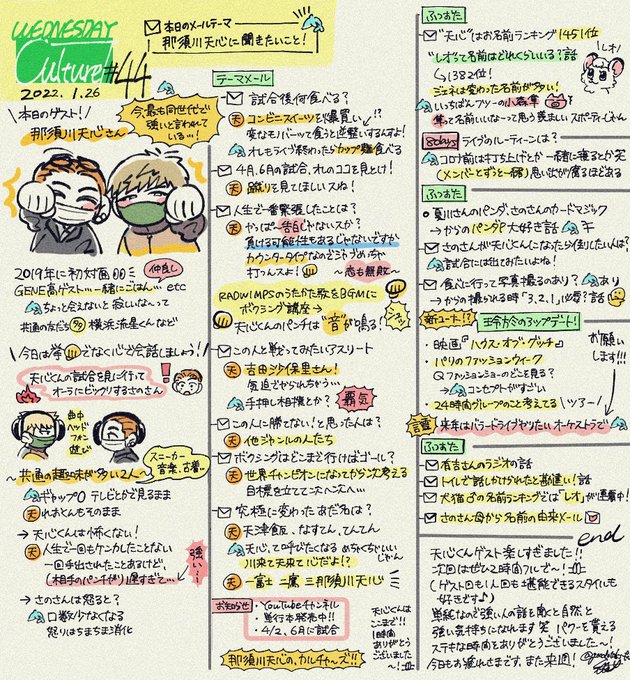 WEDNESDAY
Culture #44
2022.1.26
本日のメールテーマ
那須川天心に聞きたいこと!
\本日のゲスト!/
那須川天心さん
今、最も同世代で
強いと言われて
いる…!
2019年に初対面
仲良し
GENE高ゲスト…一緒にごはん…etc
ちょっと会えないと寂しいな〜って
共通の友だち 横浜流星くんなど
今日は拳でなく心で会話しましょう!
天心くんの試合を見に行って
オーラにビックリするさのさん
曲中
ヘッド
フォン
遊び
スニーカー
音楽、古着…
〜共通の趣味が多い2人〜
ギャップ0 テレビとかで見るまま
それとんもそのまま
→天心くんは怖くない!
人生で一回もケンカしたことない
一回手出されたことあるけど、
(相手のパンチが)遅すぎて…
強い…
→さのさんは怒ると?
口数少なくなる
怒りはちまちま消化
テーマメール
試合後何食べる?
コンビニスイーツを爆買い
変なモノパーッて食うと逆襲いするんすよ!
オレもライブ終わったらカップ麺食べる
4月、6月の試合、オレのココを見とけ!
蹴りを見てほしいスね!
人生で一番緊張したことは?
やっぱ〜告白じゃないスか?
負ける可能性もあるじゃないですか
カウンタータイプなのでこっちがめちゃ
打つんスよ!
〜恋も無敗〜
RADWIMPSのうたかた歌をBGMに
ボクシング講座→
天心くんのパンチは"音"が鳴る!
シュッ
この人と戦ってみたいアスリート
吉田沙保里さん!
気迫でやられちゃう…
手押し相撲とか?
覇気
この人に勝てない!と思った人は?
他ジャンルの人たち
ボクシングはどこまで行けばゴール?
世界チャンピオンになってから次考える
目標を立てて次へ次へ…
究極に変わったあだ名は?
天津飯、なすてん、てんてん
天心、って呼びたくなる めちゃくちゃいい
じゃん
川来て天来て心だよ!?
一富士 二鷹 三那須川天心
お知らせ
・YouTubeチャンネル
・単行本発売中!!
・4/2、6月に試合
天心くんは
ここまで!!
1時間
ありがとう
ございました
〜!
那須川天心の、カルチャ〜ズ!!
ふつおた
"天心"はお名前ランキング1451位
"レオ"って名前はどれくらいいる?話
↳1382位!
ジェネは変わった名前が多い!
レオ!
いっちばんフツーの小森隼
隼って名前いいなーって思う羨ましい スポーティじゃん
8days ライブのルーティーンは?
コロナ前は打ち上げとか一緒に寝るとか笑
(メンバーとずっと一緒)思い出が腐るほどある
ふつおた
・夏川さんのパンダ、さのさんのカードマジック
→からのパンダP大好き話
さのさんが天心くんになったら何したい?
試合には出てみたいよね!
食べに行って写真撮るのあり? あり
→からの撮られる時「3、2、1」必要?話
新コーナー!?
玲於今のアップデート!
・映画『ハウス・オブ・グッチ』
・パリのファッションウィーク
Q ファッションショーのどこを見る?
→コンセプトがすごい
・24時間グループのこと考えてる ツアー
お願い
します!!!
言霊
来年はバラードライブやりたい オーケストラで
ふつおた
有吉さんのラジオの話
トイレで話しかけられたと勘違い!話
犬猫♂の名前ランキングでは「レオ」が連覇中!
さのさん母から名前の由来メール
end
天心くんゲスト楽しすぎました!!
次回はぜひ2時間フルで〜!
(ゲスト回も1人回も堪能できるスタイルも
好きです♪)
単純なので強い人の話を聞くと自然と
強い気持ちになれます笑 パワーを貰える
ステキな2時間をありがとうございました〜!
今日もお疲れさまです。また来週!